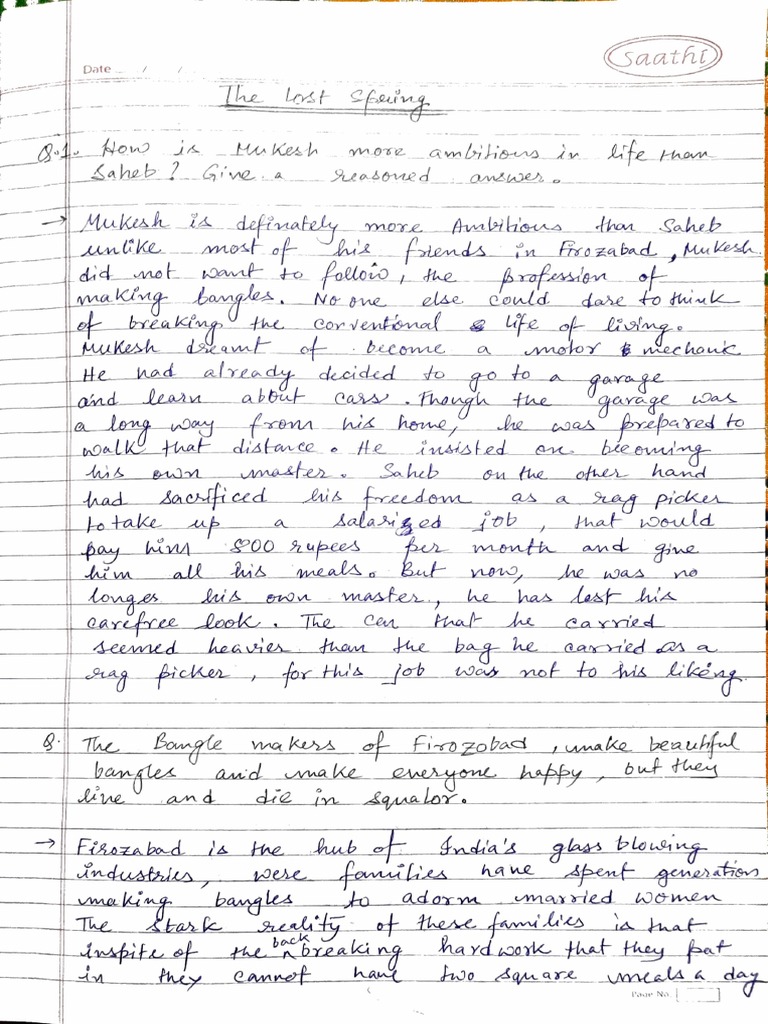 Saathi
Date / /
The Lost Spring
Q.1. How is Mukesh more ambitious in life than
Saheb? Give a reasoned answer.
→ Mukesh is definately more Ambitious than Saheb
unlike most of his friends in Firozabad, Mukesh
did not want to follow, the profession of
making bangles. No one else could dare to think
of breaking the conventional life of living.
Mukesh dreamt of become a motor mechanic
He had already decided to go to a garage
and learn about cars. Though the garage was
a long way from his home, he was prepared to
walk that distance. He insisted on becoming
his own master. Saheb on the other hand
had sacrificed his freedom as a rag picker
to take up a salarized job, that would
pay him 800 rupees per month and give
him all his meals. But now, he was no
longer his own master, he has lost his
carefree look. The can that he carried
seemed heavier than the bag he carried as a
rag picker, for this job was not to his liking.
Q. The Bangle makers of Firozobad, make beautiful
bangles and make everyone happy, but they
live and die in squalor.
→ Firozabad is the hub of India's glass blowing
industries, were families have spent generation
making bangles to adorm married women
The stark reality of these families is that
inspite of the back breaking hardwork that they put
in they cannot have two square meals a day
Page No.